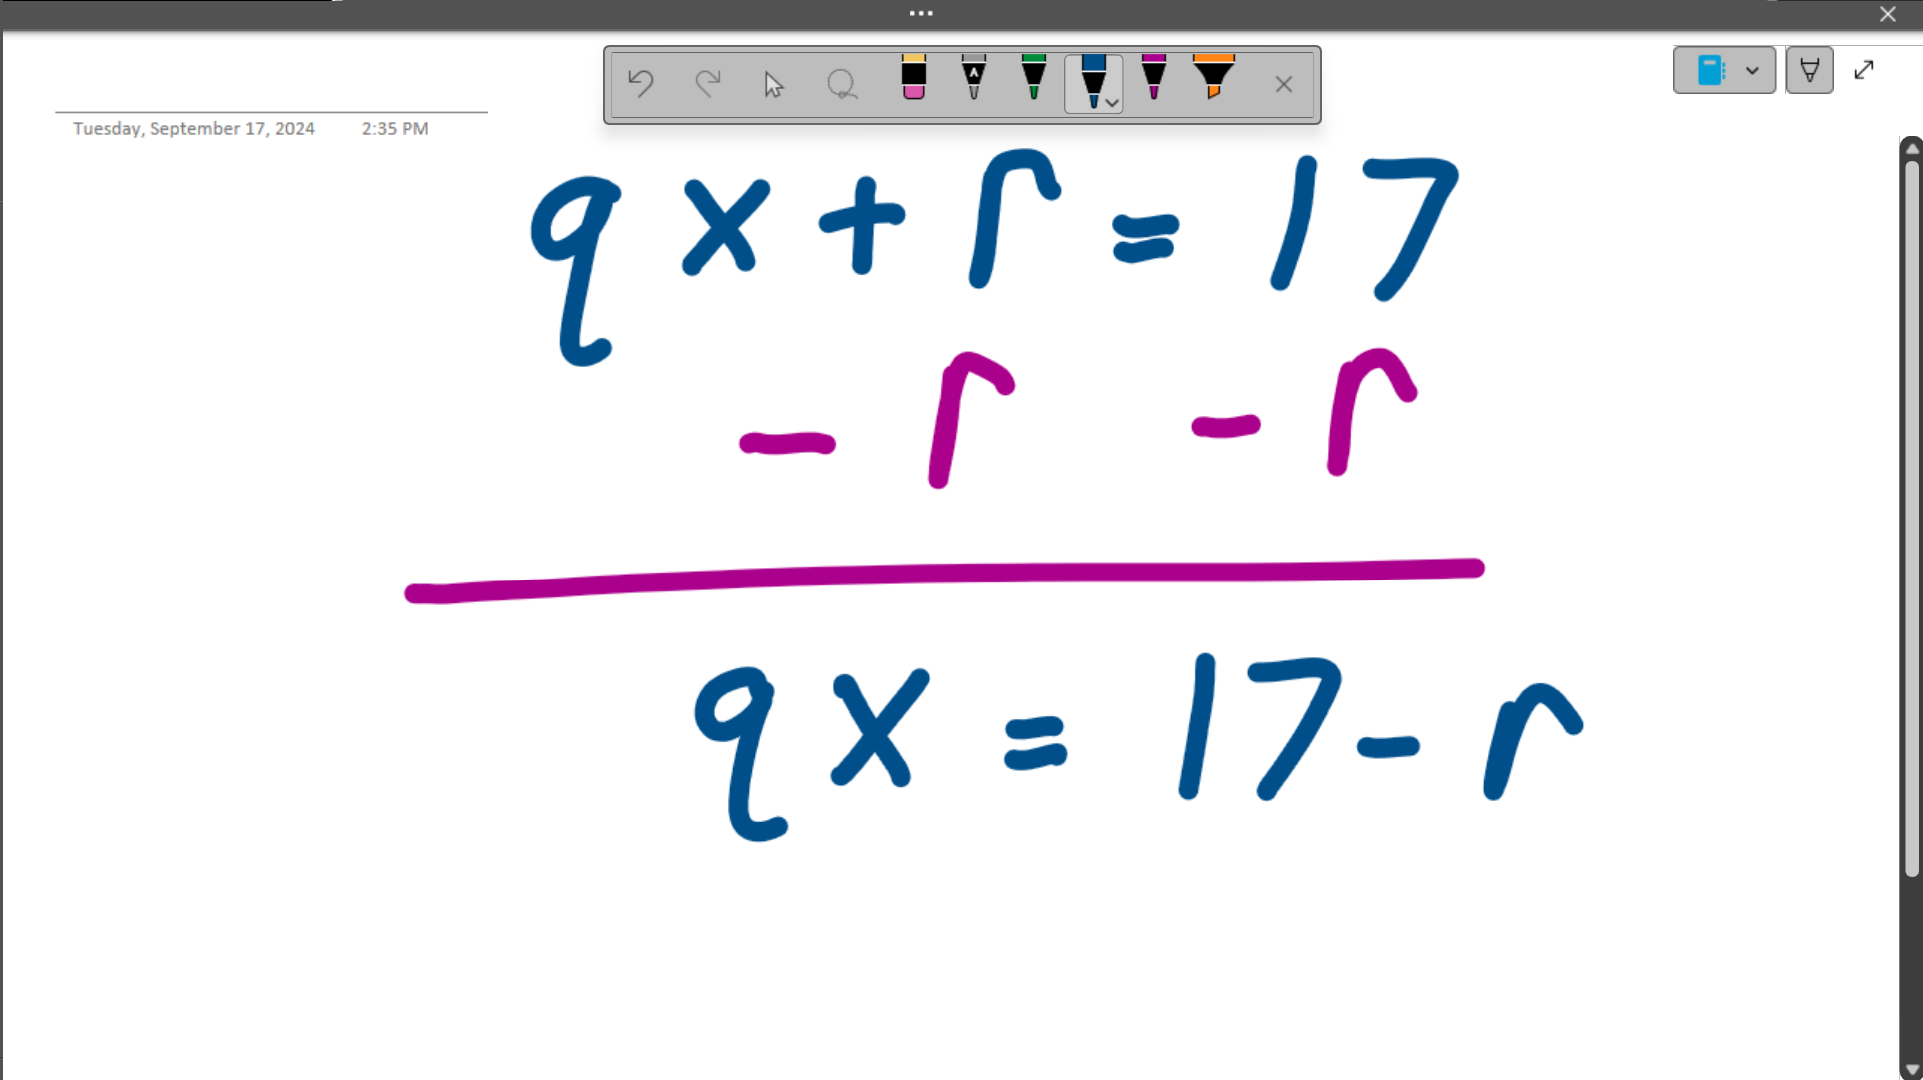 Tuesday, September 17, 2024 2:35 PM
qx+r=17
-r -r
qx=17-r